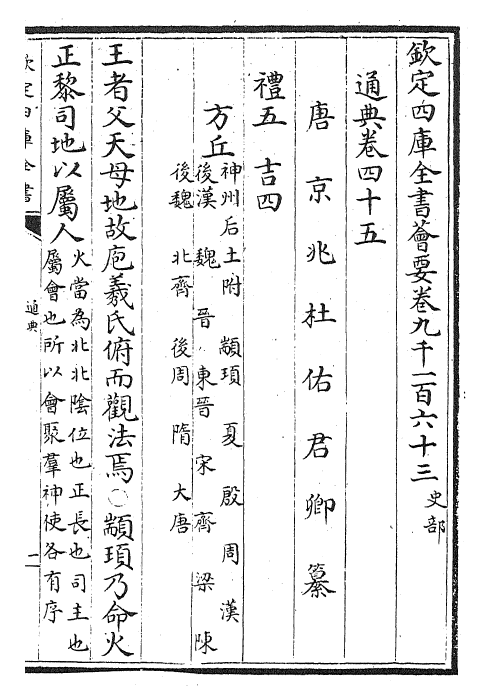 欽定四庫全書薈要卷九千一百六十三 史部
通典卷四十五
唐京兆杜佑君卿纂
禮五 吉四
方丘 神州后土附 顓頊 夏 殷 周 漢
後漢 魏 晉 東晉 宋 齊 梁 陳
後魏 北齊 後周 隋 大唐
王者父天母地故庖羲氏俯而觀法焉○顓頊乃命火
正黎司地以屬人 火當為北北陰位也正長也司主也
屬會也所以會聚羣神使各有序
欽定四庫全書
通典
一